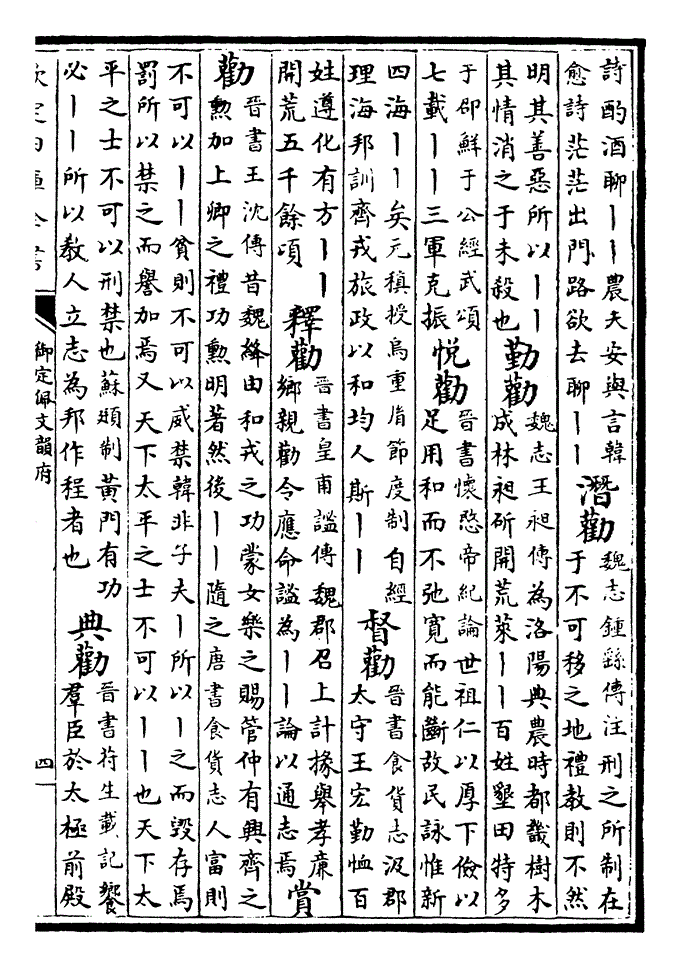 詩酌酒聊丨丨農夫安與言韓
愈詩茫茫出門路欲去聊丨丨
潛勸
魏志鍾繇傳注刑之所制在
于不可移之地禮教則不然
明其善惡所以丨丨
其情消之于未殺也
勤勸
魏志王昶傳為洛陽典農時都畿樹木
成林昶斫開荒萊丨丨百姓墾田特多
于郡鮮于公經武頌
七載丨丨三軍克振
悅勸
晉書懷愍帝紀論世祖仁以厚下儉以
足用和而不弛寬而能斷故民詠惟新
四海丨丨矣元稹授烏重胤節度制自經
理海邦訓齊戎旅政以和均人斯丨丨
督勸
晉書食貨志汲郡
太守王宏勤恤百
姓遵化有方丨丨
開荒五千餘頃
釋勸
晉書皇甫謐傳魏郡召上計掾舉孝廉
鄉親勸令應命謐為丨丨論以通志焉
賞
勸
晉書王沈傳昔魏絳由和戎之功蒙女樂之賜管仲有興齊之
勲加上卿之禮功勲明著然後丨丨隨之唐書食貨志人富則
不可以丨丨貧則不可以威禁韓非子夫丨所以丨之而毀存焉
罰所以禁之而譽加焉又天下太平之士不可以丨丨也天下太
平之士不可以刑禁也蘇頲制黃門有功
必丨丨所以敎人立志為邦作程者也
典勸
晉書苻生載記饗
羣臣於太極前殿
欽定四庫全書
御定佩文韻府
四